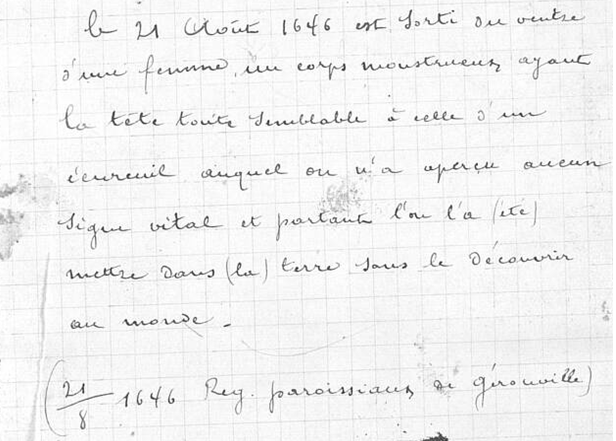 le 21 Août 1646 est sorti du ventre
d'une femme, un corps monstrueux ayant
la tête toute semblable à celle d'un
écureuil auquel on n'a aperçu aucun
signe vital et partant l'on l'a (été)
mettre dans (la) terre sans le découvrir
au monde.
(21/8 1646 Reg. paroissiaux de Gérouville)